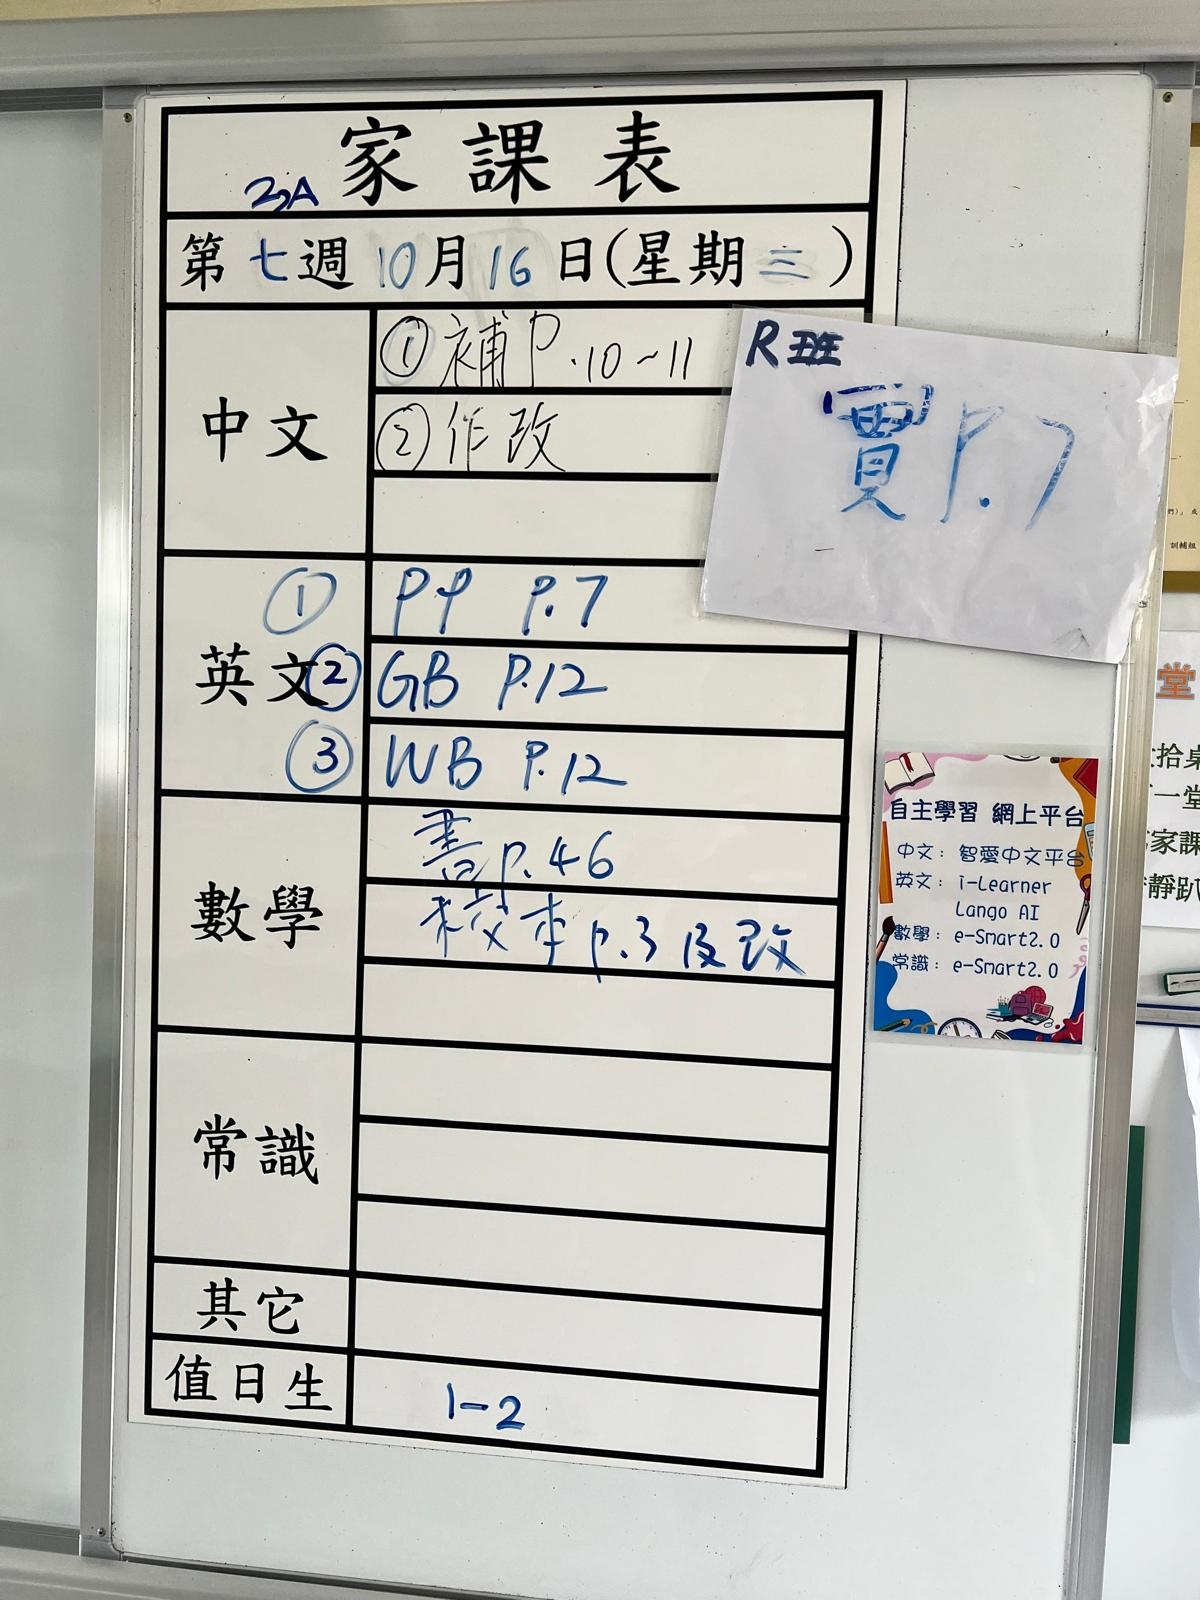 家課表
2A
第七週10月16日(星期三)
中文
①補P.10~11
②作改
R班
P.7
英文
① PP P.7
② GB P.12
③ WB P.12
數學
書P.46
校本P.3及改
常識
其它
值日生
1-2
自主學習 網上平台
中文：智愛中文平台
英文：i-Learner
Lango AI
數學：e-Smart2.0
常識：e-Smart2.0
訓輔組
堂
拾桌
一堂
家課
靜趴